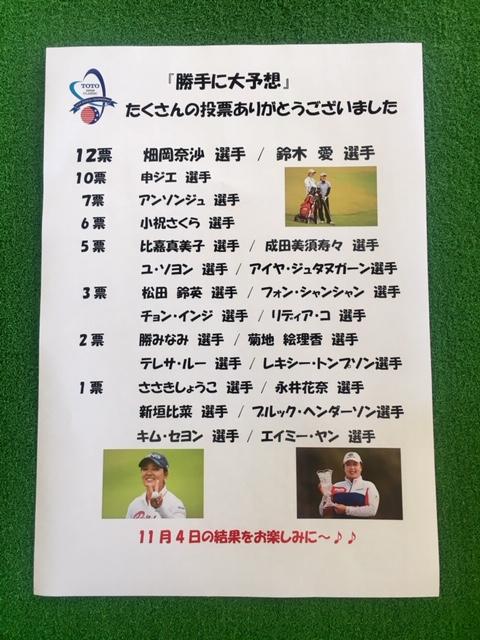 TOTO
JAPAN
CLASSIC
『勝手に大予想』
たくさんの投票ありがとうございました
12票 畑岡奈沙 選手 / 鈴木 愛 選手
10票 申ジエ 選手
7票 アンソンジュ 選手
6票 小祝さくら 選手
5票 比嘉真美子 選手 / 成田美須寿々 選手
ユ・ソヨン 選手 / アイヤ・ジュタヌガーン選手
3票 松田 鈴英 選手 / フォン・シャンシャン 選手
チョン・インジ 選手 / リディア・コ 選手
2票 勝みなみ 選手 / 菊地 絵理香 選手
テレサ・ルー 選手 / レキシー・トンプソン選手
1票 ささきしょうこ 選手 / 永井花奈 選手
新垣比菜 選手 / ブルック・ヘンダーソン選手
キム・セヨン 選手 / エイミー・ヤン 選手
11月4日の結果をお楽しみに～♪♪